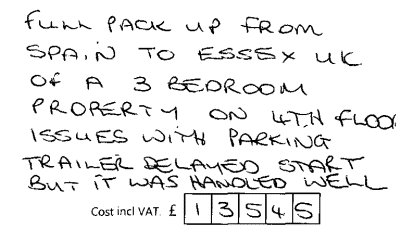 FULL PACK UP FROM
SPAIN TO ESSEX UK
OF A 3 BEDROOM
PROPERTY ON 4TH FLOOR
ISSUES WITH PARKING
TRAILER DELAYED START
BUT IT WAS HANDLED WELL
Cost incl VAT. £ 13545